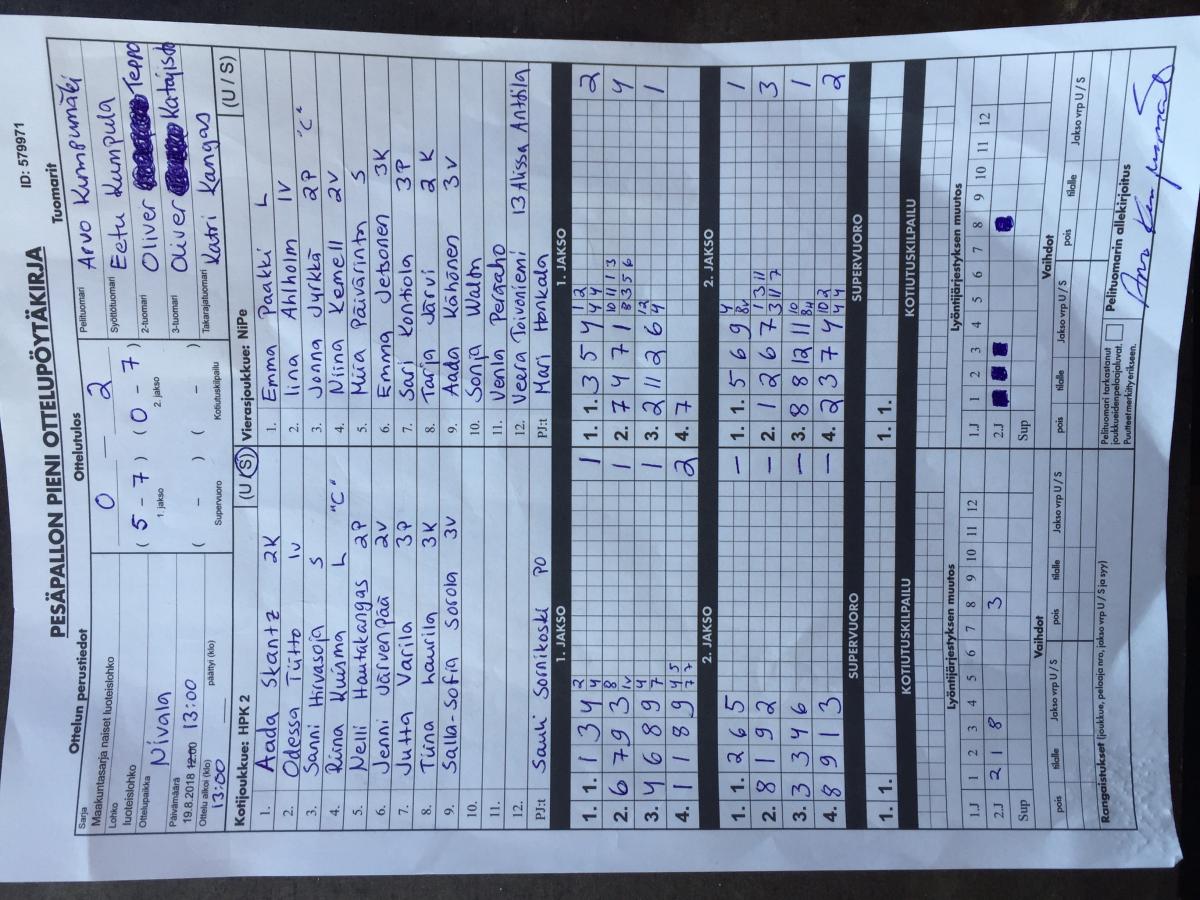 PESÄPALLON PIENI OTTELUPÖYTÄKIRJA
ID: 579971
Ottelun perustiedot
Sarja
Maakuntasarja naiset luoteislohko
Lohko
luoteislohko
Ottelupaikka
Nivala
Päivämäärä
19.8.2018 12:00 13:00
Ottelu alkoi (klo) päättyi (klo)
13:00
Ottelutulos
0 2
( 5 - 7 ) ( 0 - 7 )
1. jakso 2. jakso
( - ) ( - )
Supervuoro Kotiutuskilpailu
Tuomarit
Pelituomari Arvo Kumpumäki
Syöttötuomari Eetu Kumpula
2-tuomari Oliver Teppo
3-tuomari Oliver Katajisto
Takarajatuomari Katri Kangas
Kotijoukkue: HPK 2 (U / S)
1. Aada Skantz 2K
2. Odessa Tiitto 1V
3. Sanni Hirvasoja S
4. Riina Kuisma L "C"
5. Nelli Hautakangas 2P
6. Jenni Järvenpää 2V
7. Jutta Varila 3P
8. Tiina Laurila 3K
9. Salla-Sofia Sorola 3V
10.
11.
12.
PJ:t Sauli Sornikoski PO
Vierasjoukkue: NiPe (U / S)
1. Emma Paakki L
2. Iina Ahlholm 1V
3. Jonna Jyrkkä 2P "C"
4. Niina Kemell 2V
5. Miia Päivärinta S
6. Emma Jetsonen 3K
7. Sari Kontiola 3P
8. Tarja Järvi 2K
9. Aada Kähönen 3V
10. Sonja Walta
11. Venla Pergaho
12. Veera Toivoniemi 13 Alissa Anttila
PJ:t Mari Honkala
1. JAKSO
1. 1. 1 3 4 2 4 1
2. 6 7 9 3 8 1V 1
3. 4 6 8 9 4 7 1
4. 1 1 8 9 4 5 7 7 2
1. JAKSO
1. 1. 3 5 4 1 2 4 4 2
2. 7 4 7 1 10 11 1 3 8 3 5 6 4
3. 2 11 2 6 12 4 1
4. 7
2. JAKSO
1. 1. 2 6 5 –
2. 8 1 9 2 –
3. 3 3 4 6 –
4. 8 9 1 3 –
2. JAKSO
1. 1. 5 6 9 4 8V 1
2. 1 2 6 7 1 3 11 3 11 7 3
3. 8 8 12 11 10 1
4. 2 3 7 4 10 2 4 4 2
SUPERVUORO
1. 1.
SUPERVUORO
1. 1.
KOTIUTUSKILPAILU
KOTIUTUSKILPAILU
Lyöntijärjestyksen muutos
1.J 1 2 3 4 5 6 7 8 9 10 11 12
2.J 2 1 8 3
Sup
Lyöntijärjestyksen muutos
1.J 1 2 3 4 5 6 7 8 9 10 11 12
2.J
Sup
Vaihdot
pois tilalle Jakso vrp U / S pois tilalle Jakso vrp U / S
Vaihdot
pois tilalle Jakso vrp U / S pois tilalle Jakso vrp U / S
Rangaistukset (joukkue, pelaaja nro, jakso vrp U / S ja syy)
Pelituomari tarkastanut
joukkueidenpelaajaluvat.
Puutteet merkitty erikseen.
Pelituomarin allekirjoitus